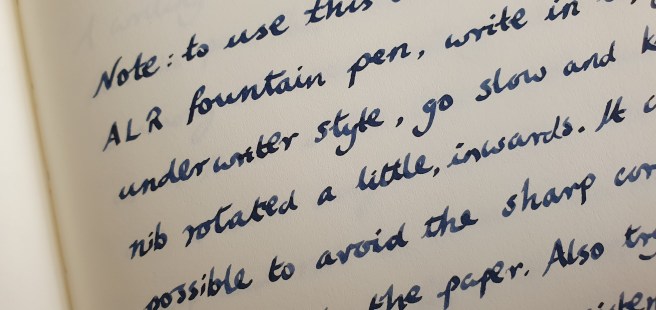 Note: to use this
ALR fountain pen, write in
underwriter style, go slow and
nib rotated a little, inwards. It
possible to avoid the sharp
the paper. Also